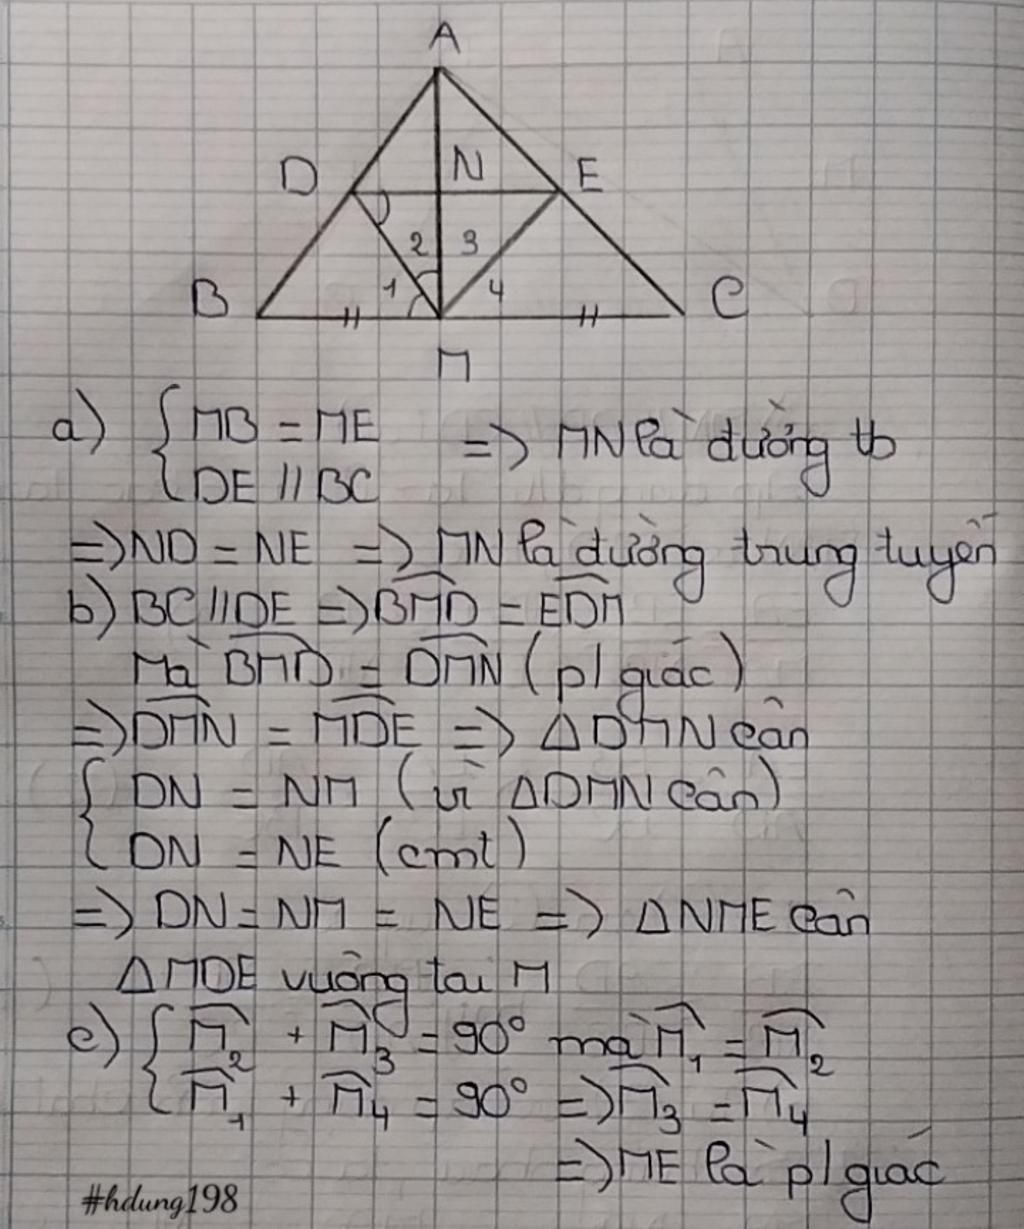 A
D N E
2 3
B 1 4 C
M
a) { MB = ME => MN là đường tb
DE // BC
=> ND = NE => MN là đường trung tuyến
b) BC // DE => BMD = EDM
Mà BMD = DMN (p/giác)
=> DMN = MDE => ΔDMN cân
{ DN = NM (vì ΔDMN cân)
DN = NE (cmt)
=> DN = NM = NE => ΔNME cân
ΔMDE vuông tai M
c) { M₂ + M₃ = 90° mà M₁ = M₂
M₁ + M₄ = 90° => M₃ = M₄
=> ME là p/giác
#hdung198